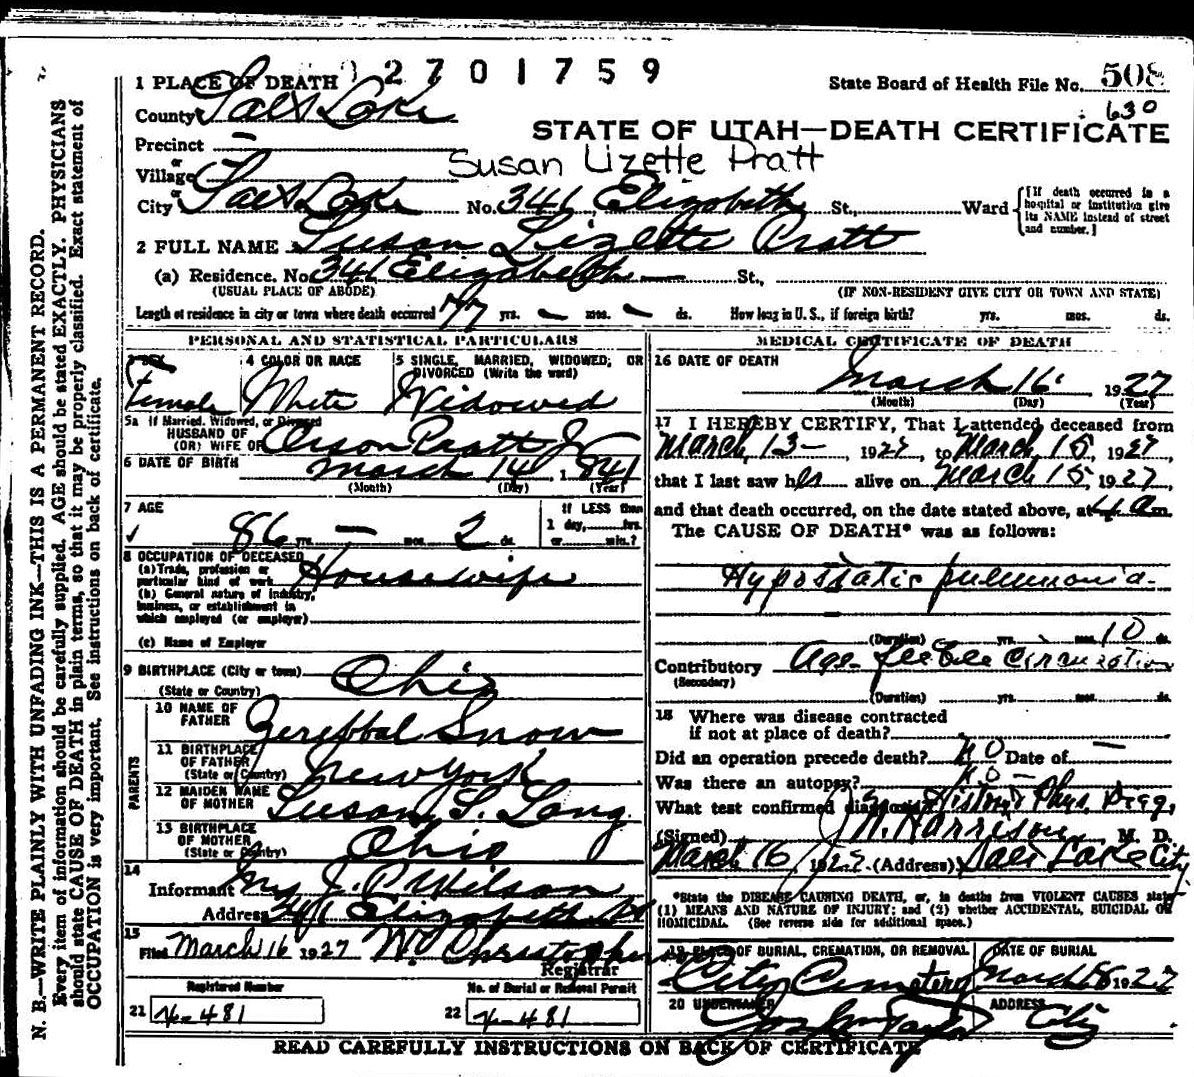 1 PLACE OF DEATH 2701759 State Board of Health File No. 508
County Salt Lake 630
Precinct — STATE OF UTAH—DEATH CERTIFICATE
or
Village Susan Lizette Pratt
or
City Salt Lake No. 341 Elizabeth St., Ward [If death occurred in a hospital or institution give its NAME instead of street and number.]
2 FULL NAME Susan Lizette Pratt
(a) Residence. No. 341 Elizabeth St.,
(USUAL PLACE OF ABODE) (IF NON-RESIDENT GIVE CITY OR TOWN AND STATE)
Length of residence in city or town where death occurred 77 yrs. — mos. — ds. How long in U. S., if foreign birth? yrs. mos. ds.
PERSONAL AND STATISTICAL PARTICULARS
3 SEX 4 COLOR OR RACE 5 SINGLE, MARRIED, WIDOWED, OR DIVORCED (Write the word)
Female White Widowed
5a If Married, Widowed, or Divorced
HUSBAND OF
(OR) WIFE OF Orson Pratt Jr
6 DATE OF BIRTH March 14 1841
(Month) (Day) (Year)
7 AGE If LESS than
86 yrs. — mos. 2 ds. 1 day, hrs.
or min.?
8 OCCUPATION OF DECEASED
(a) Trade, profession or particular kind of work Housewife
(b) General nature of industry, business, or establishment in which employed (or employer)
(c) Name of Employer
9 BIRTHPLACE (City or town) Ohio
(State or Country)
PARENTS
10 NAME OF FATHER Snow
11 BIRTHPLACE OF FATHER (State or Country) New York
12 MAIDEN NAME OF MOTHER Susan S. Lang
13 BIRTHPLACE OF MOTHER (State or Country) Ohio
14
Informant J. P. Wilson
Address 341 Elizabeth St
15
Filed March 16 1927
Registrar
Registered Number No. of Burial or Removal Permit
21 X-481 22 X-481
MEDICAL CERTIFICATE OF DEATH
16 DATE OF DEATH
March 16 1927
(Month) (Day) (Year)
17 I HEREBY CERTIFY, That I attended deceased from
March 13— 1927 to March 15, 1927
that I last saw her alive on March 15, 1927,
and that death occurred, on the date stated above, at 4 a m.
The CAUSE OF DEATH* was as follows:
Hypostatic pneumonia
(Duration) yrs. mos. 10 ds.
Contributory Age - feeble circulation
(Secondary)
(Duration) yrs. mos. ds.
18 Where was disease contracted
if not at place of death?
Did an operation precede death? no Date of —
Was there an autopsy? no —
What test confirmed diagnosis? History Phys. Diag.
(Signed) Harrison M. D.
March 16 1927. (Address) Salt Lake City
*State the DISEASE CAUSING DEATH, or, in deaths from VIOLENT CAUSES state
(1) MEANS AND NATURE OF INJURY; and (2) whether ACCIDENTAL, SUICIDAL OR
HOMICIDAL. (See reverse side for additional space.)
19 PLACE OF BURIAL, CREMATION, OR REMOVAL DATE OF BURIAL
City Cemetery March 1927
20 UNDERTAKER ADDRESS
Taylor City
READ CAREFULLY INSTRUCTIONS ON BACK OF CERTIFICATE
N. B.—WRITE PLAINLY WITH UNFADING INK—THIS IS A PERMANENT RECORD.
Every item of information should be carefully supplied. AGE should be stated EXACTLY. PHYSICIANS
should state CAUSE OF DEATH in plain terms, so that it may be properly classified. Exact statement of
OCCUPATION is very important. See instructions on back of certificate.